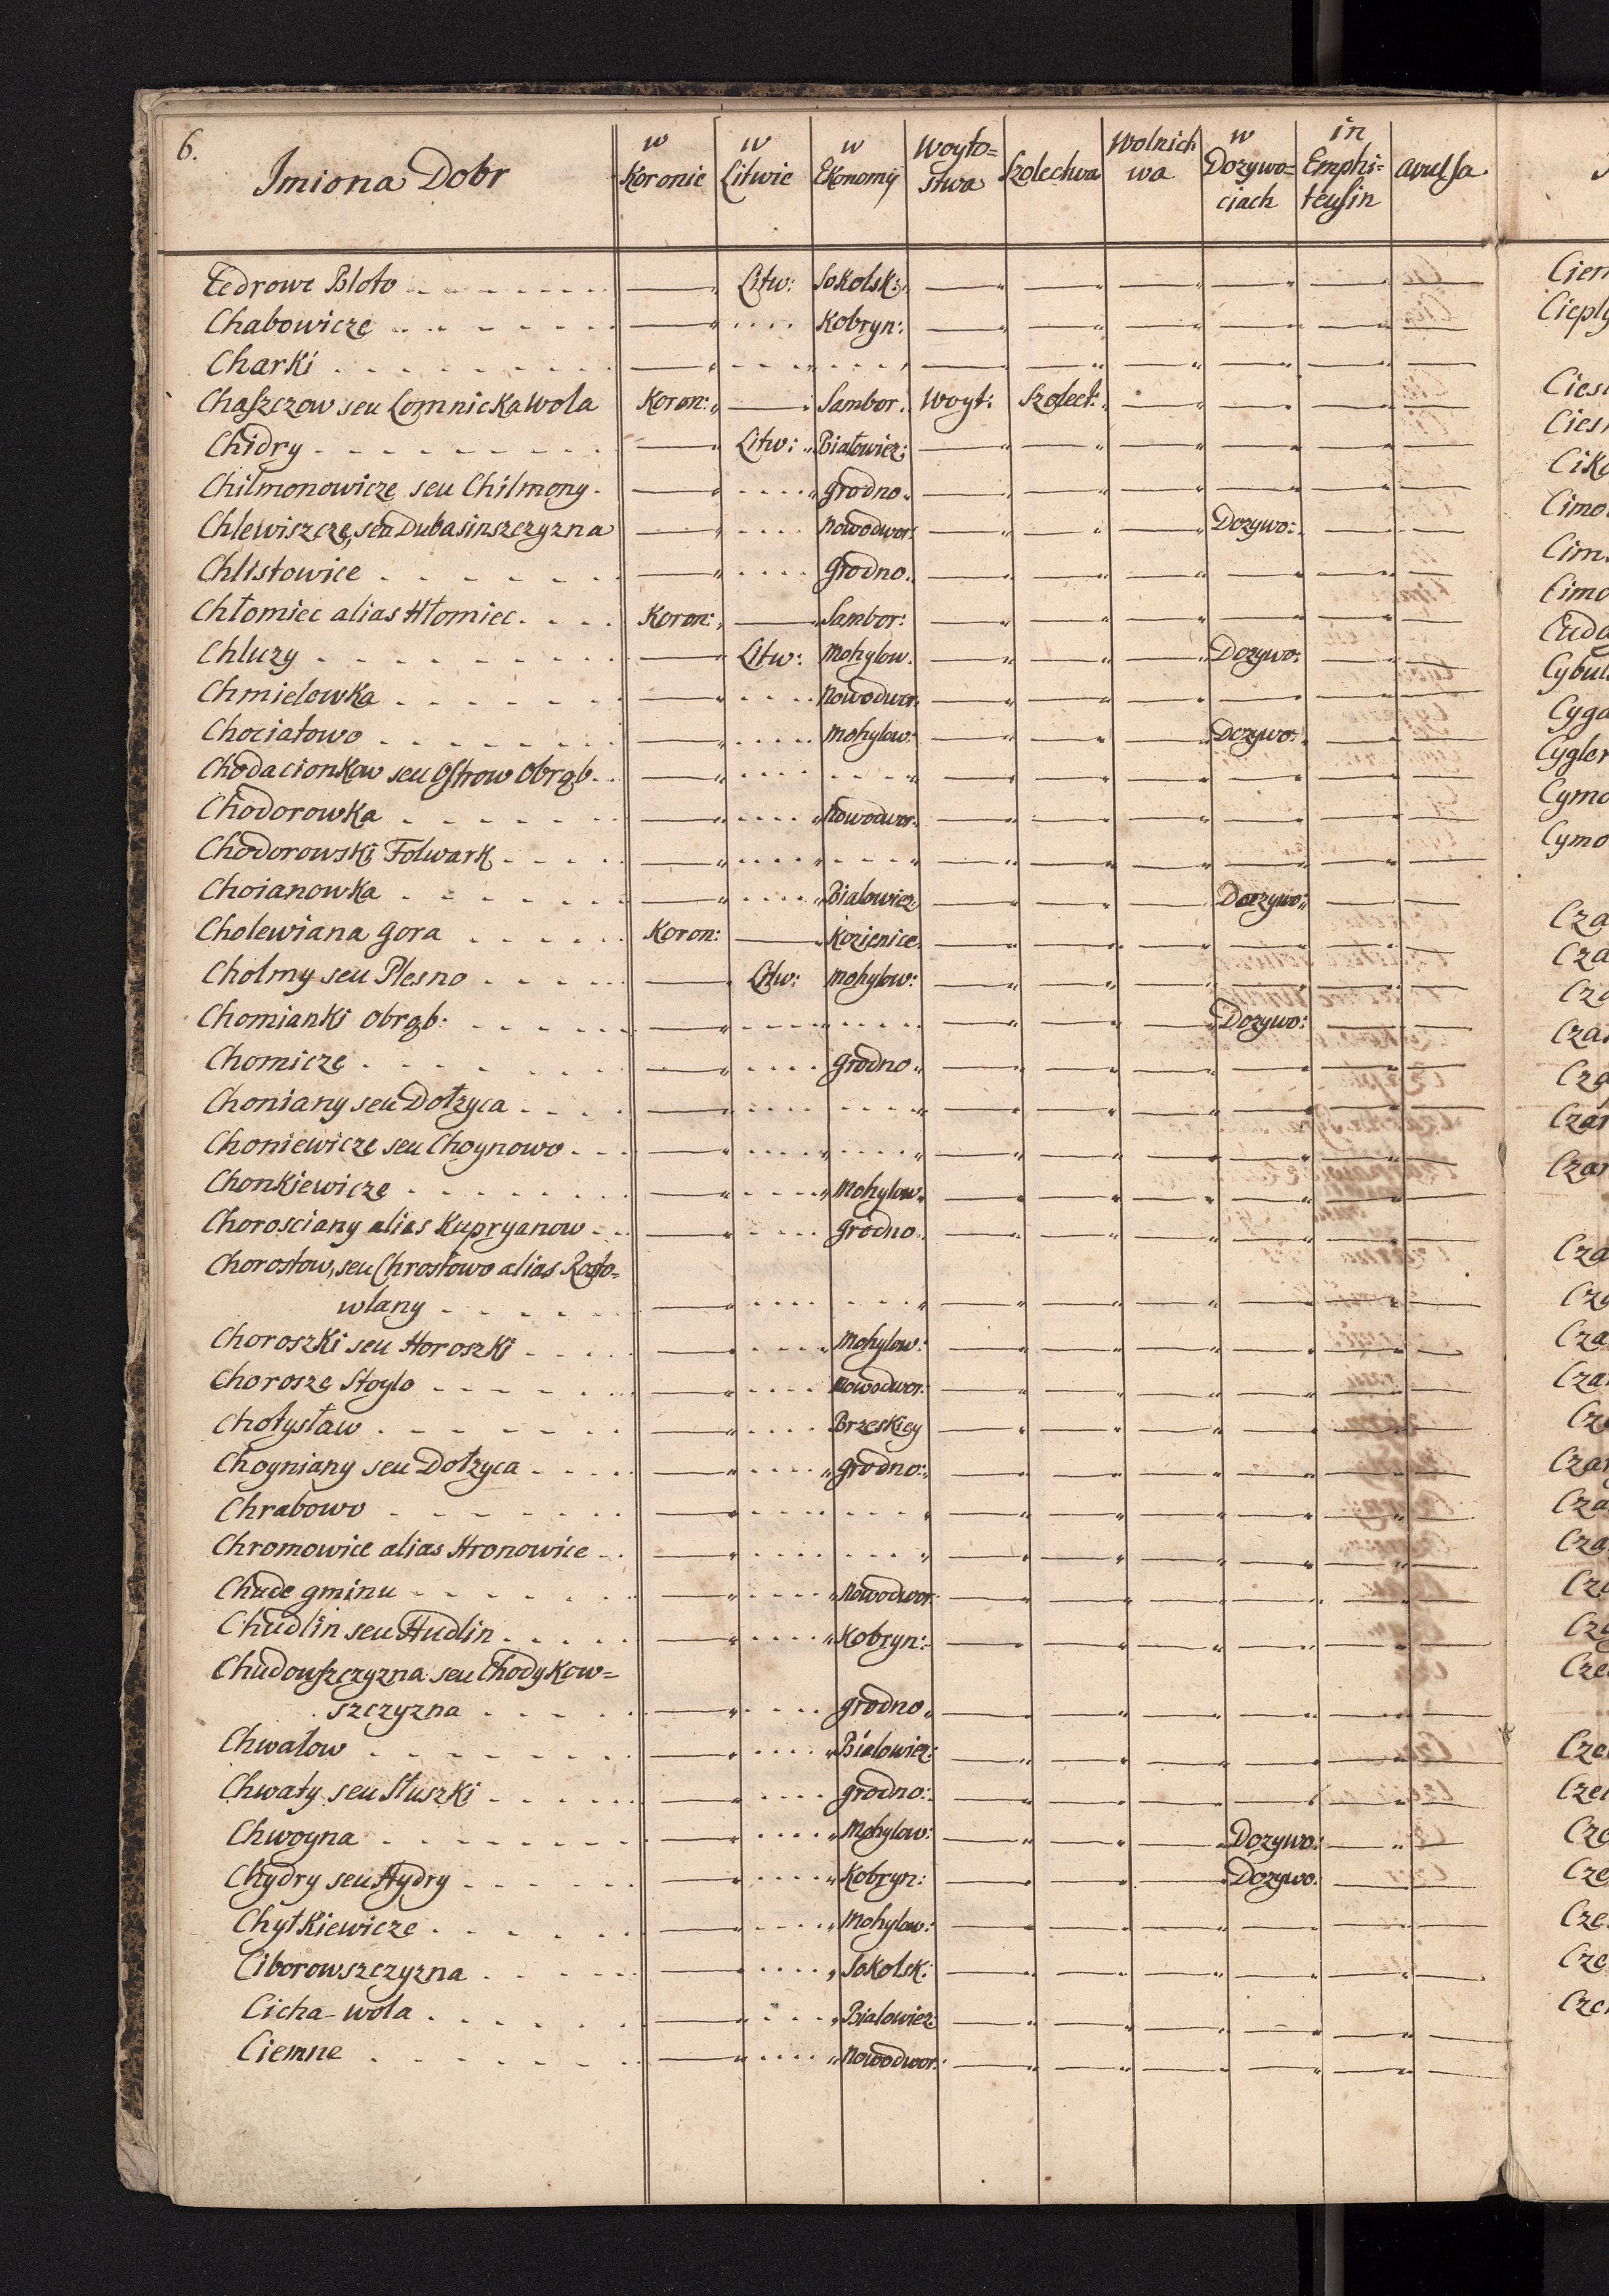 6.
Imiona Dobr | w Koronie | w Litwie | w Ekonomij | Woyto=stwa | Szolectwa | Wolnictwa | w Dozywo=ciach | in Emphi=teusin | avulsa
Cedrowe Bloto | Litw: | Sokolsk:
Chabowicze | Kobryn:
Charki
Chaszczow seu Lomnicka Wola | Koron: | Sambor. | Woyt: | Szolect:
Chidry | Litw: | Białowiez:
Chilmonowicze seu Chilmony | grodno.
Chlewiszcze, seu Dubasinszczyzna | Nowodwor: | Dozywo:
Chlistowice | Grodno.
Chłomiec alias Hłomiec | Koron: | Sambor:
Chluzy | Litw: | Mohylow. | Dozywo:
Chmielowka | Nowodwor.
Chociatowo | Mohylow: | Dozywo:
Chodacionkow seu Ostrow Obrąb
Chodorowka | Nowodwor.
Chodorowski Folwark
Choianowka | Bialowiez. | Dozywo:
Cholewiana gora | Koron: | Kozienice.
Cholmy seu Plesno | Litw: | Mohylow:
Chomianki Obrąb: | Dozywo:
Chomicze | Grodno.
Choniany seu Dołzyca
Choniewicze seu Choynowo
Chonkiewicze | Mohylow.
Chorosciany alias Kupryanow | grodno.
Chorostow, seu Chrostowo alias Rosto=
wlany
Choroszki seu Horoszki | Mohylow:
Chorosze Stoylo | Nowodwor.
Chotysław | Brzeskiey
Choyniany seu Dołzyca | grodno:
Chrabowo
Chromowice alias Hronowice
Chude gminu | Nowodwor
Chudlin seu Hudlin | Kobryn:
Chudowszczyzna seu Chodykow=
szczyzna | grodno.
Chwałow | Bialowiez:
Chwaty seu Słuszki | grodno:
Chwoyna | Mohylow: | Dozywo:
Chydry seu Hydry | Kobryn: | Dozywo.
Chytkiewicze | Mohylow:
Ciborowszczyzna | Sokolsk:
Cicha-wola | Bialowiez:
Ciemne | Nowodwor: